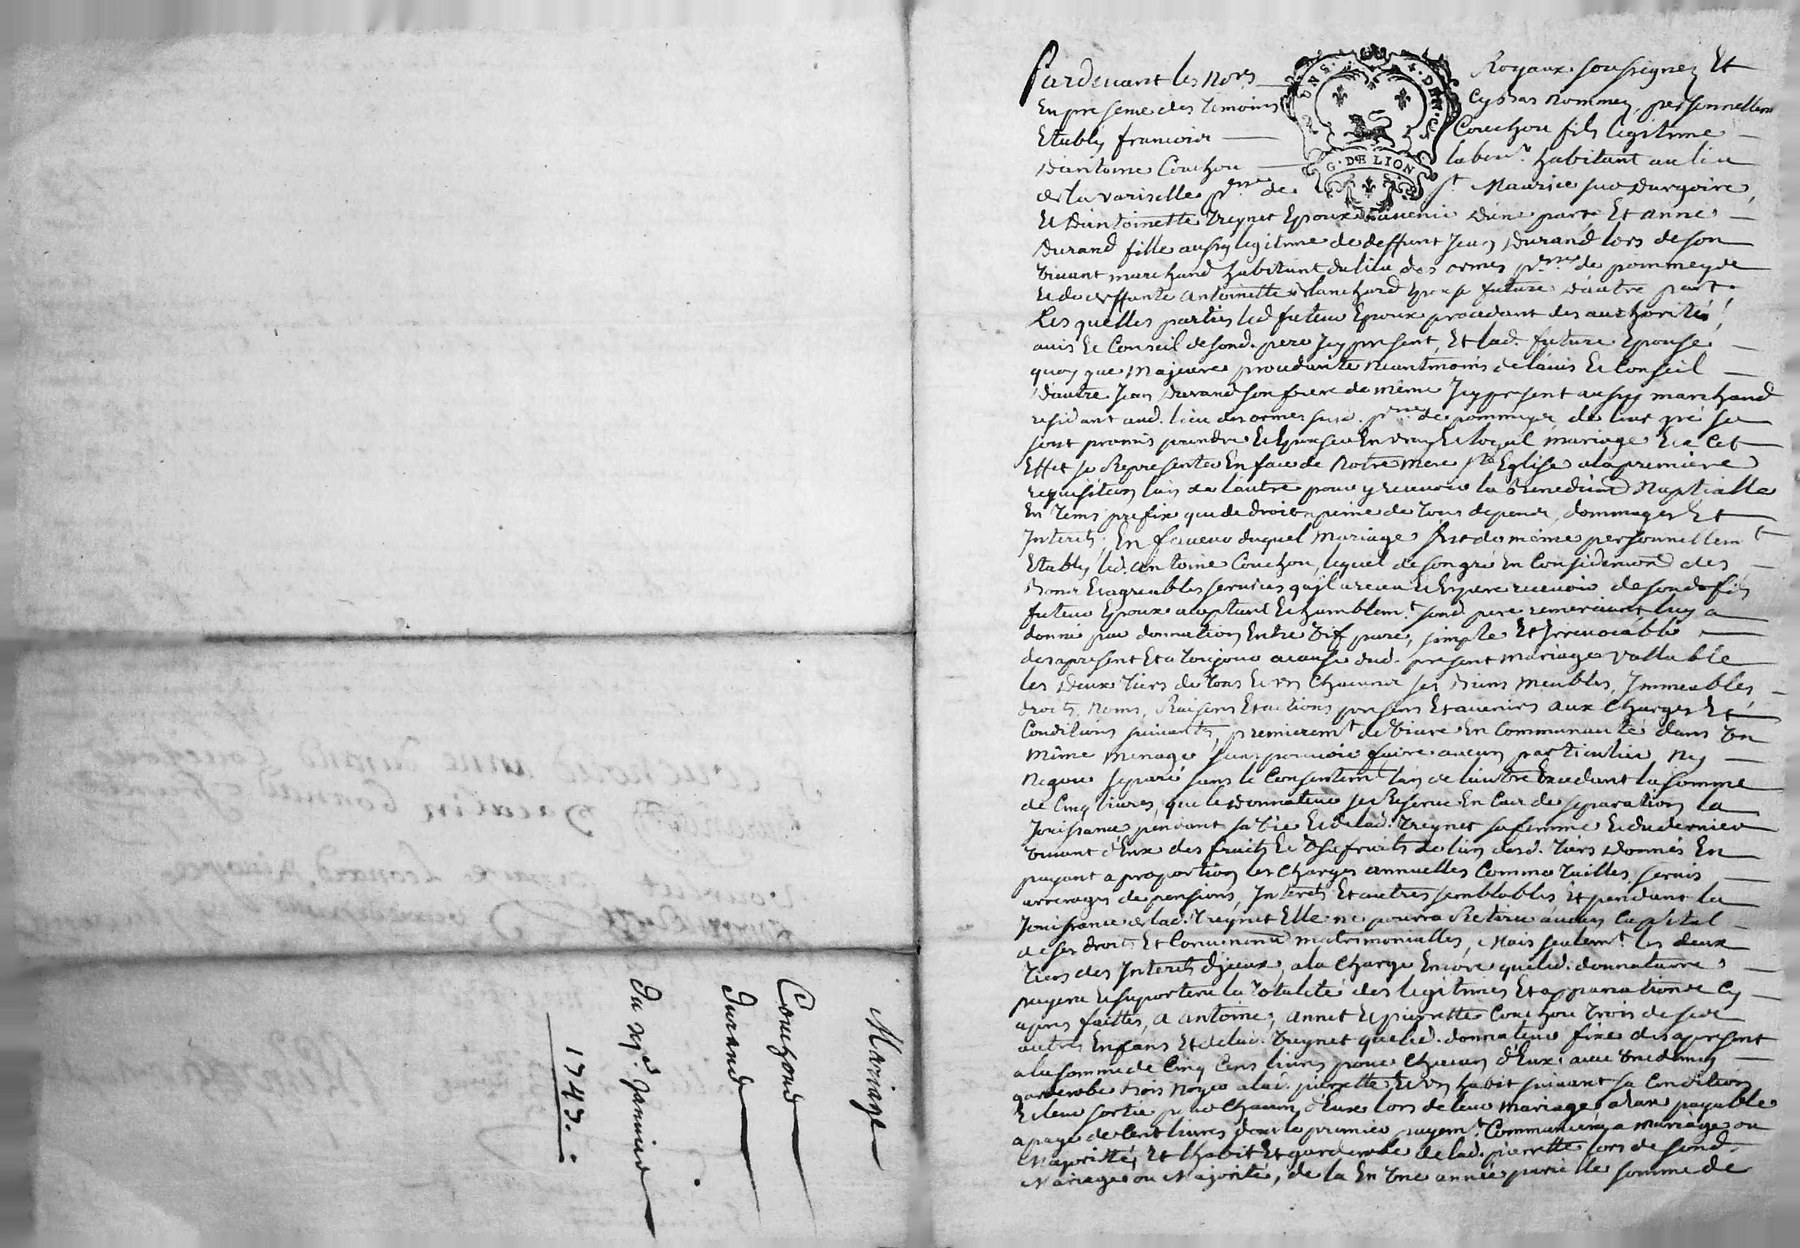 Mariage
Couchoud
Durand
Du 19e Janvier
1743.
Pardevant les Nores Royaux soussignez Et
En presence des temoins Cy bas nommez, personnellem
Etably francois Couchou fils legitime
D'antoine Couchou labour. habitant au lieu
de la variselle psse de St Maurice sur dargoire,
Et D'antoinette Treynet Epoux avenir d'une part Et anne
Durand fille aussy legitime de deffunt Jean Durand lors de son
vivant marchand habitant du lieu des ormes psse de pommeys
Et de deffunte antoinette blanchard Epouse future d'autre part.
Les quelles parties led futeur Epoux procedant des authorité,
avis Et Conseil de sond. pere Jcy present, Et lad. future Epouse
quoy que majeure procedante neantmoins de l'avis Et Conseil
d'autre Jean Durand son frere de même Jcy present aussy marchand
residant aud. lieu des ormes susd. psse de pommeys de leur gré se
sont promis prendre Et Epouser En vray Et loyal mariage Et a Cet
Effet se Representer En face de Notre mere ste Eglise a la premiere
requisition l'un de l'autre pour y recevoir la Benediction Nuptialle
En tems prefix que de droit a peine de tous depens, dommages Et
Interets. En faveur duquel mariage s'est de même personnellemt
Etably led. antoine Couchou, lequel de son gré En Consideration des
Bons Et agreables services qu'il a receu Et Espere recevoir de sond fils
futeur Epoux acceptant Et humblemt sond. pere remerciant luy a
donné par donnation Entre vif pure, simple Et Irrevocable
des apresent Et a toujours a cause dud. present mariage vallable
les Deux tiers de tous Et un Chacuns ses Biens meubles, Immeubles,
droits, Noms, Raisons Et actions presens Et avenirs aux Charges Et
Conditions suivantes, premieremt de vivre En Communauté dans un
même menage sans pouvoir faire aucun particulier Ny
Negoce separé sans le Consentemt l'un de l'autre Excedant la somme
de Cinq livres, que le Donnateur se Reserve En Cas de separation la
Jouissance pendant sa vie Et de lad. Treynet sa femme Et du dernier
vivant d'Eux des fruits Et Usufruits de l'un desd. tiers donnés En
payant a proportion les Charges annuelles Comme tailles, servis
arrerages de pensions, Interets Et autres semblables Et pendant la
Jouissance de lad. Treynet Elle ne pourra Retirer aucun Capital
de ses droits Et Conventions matrimonialles, Mais seulemt les deux
tiers des Interets d'jceux, a la Charge Encore que led. donnataire
payera Et suportera la totalité des legitimes Et apanations Cy
apres faittes, a antoine, annet Et pierrette Couchou trois de ses
autres Enfans Et de lad. Treynet que led. donnateur fixe des apresent
a la somme de Cinq Cens livres pour Chacun d'Eux avec Une
garderobe bois noyer a lad. pierrette, Et un habit suivant sa Condition
Et leur sortie pour Chacun d'Eux lors de leur mariage payable
a paye de Cent livres dont le premier payemt Commencera a mariage ou
Majorité, Et l'habit Et garderobe de lad. pierrette lors de sond.
Mariage ou Majorité, de la En Une année pareille somme de